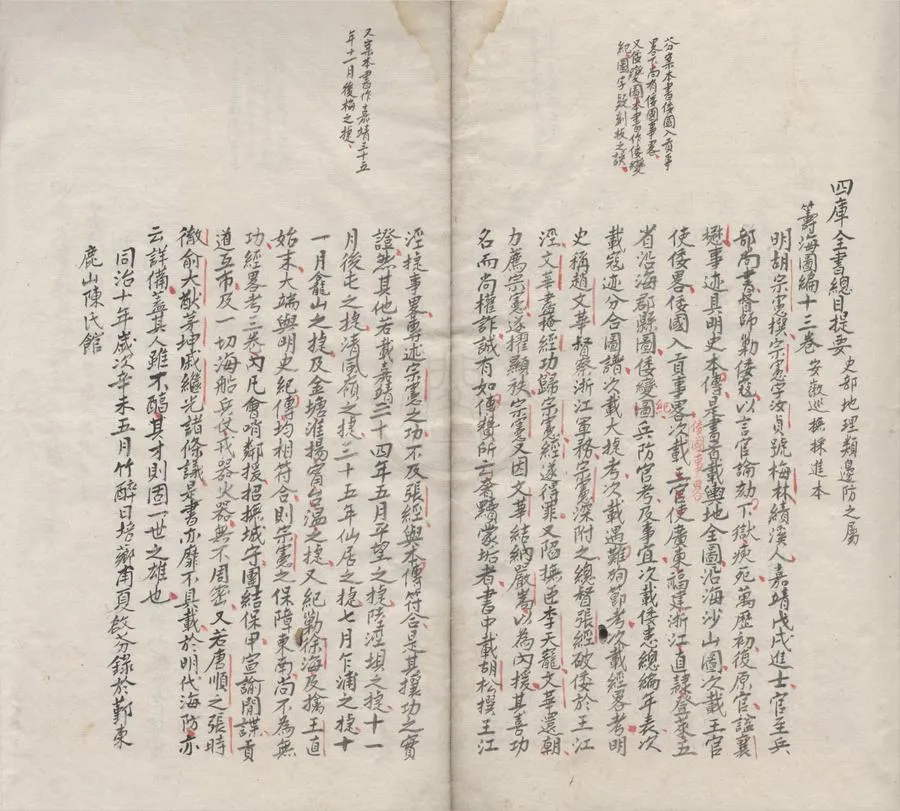 案本書倭國入貢事
畧下尚有倭國事畧
又倭變圖本書作倭變
紀圖字疑刻板之誤
四庫全書總目提要 史部地理類邊防之屬
籌海圖編十三卷 安徽巡撫採進本
明胡宗憲撰宗憲字汝貞號梅林績溪人嘉靖戊戌進士官至兵
部尚書督師勦倭寇以言官論劾下獄瘐死萬歷初復原官謚襄
懋事迹具明史本傳是書首載輿地全圖沿海沙山圖次載王官
使倭畧倭國入貢事畧次載王官使廣東福建浙江直隷登萊五
倭國事畧
省沿海郡縣圖倭變圖兵防官考及事宜次載倭患總編年表次
紀
載寇迹分合圖譜次載大捷考次載遇難殉節考次載經畧考明
史稱趙文華督察浙江軍務宗憲深附之總督張經破倭於王江
涇文華盡掩經功歸宗憲經遂得罪又陷撫臣李天寵文華還朝
力薦宗憲遂擢顯秩宗憲又因文華結納嚴嵩以為內援其喜功
名而尚權詐誠有如傳贊所云奢黷蒙垢者書中載胡松撰王江
又案本書作嘉靖三十五
年十一月後梅之捷
涇捷事畧專述宗憲之功不及張經與本傳符合是其攘功之實
證然其他若載嘉靖三十四年五月平望之捷陸涇垻之捷十一
月後屯之捷清風嶺之捷三十五年仙居之捷七月乍浦之捷十
一月龕山之捷及金塘淮揚甯台溫之捷又紀勦徐海及擒王直
始末大端與明史紀傳均相符合則宗憲之保障東南尚不為無
功經畧考三卷內凡會哨鄰援招撫城守團結保甲宣諭間諜貢
道互市及一切海船兵仗戎器火器無不周密又若唐順之張時
徹俞大猷茅坤戚繼光諸條議是書亦靡不具載於明代海防亦
云詳備蓋其人雖不醕其才則固一世之雄也
同治十年歲次辛未五月竹醉日培薌甫夏啟分錄於鄞東
鹿山陳氏館